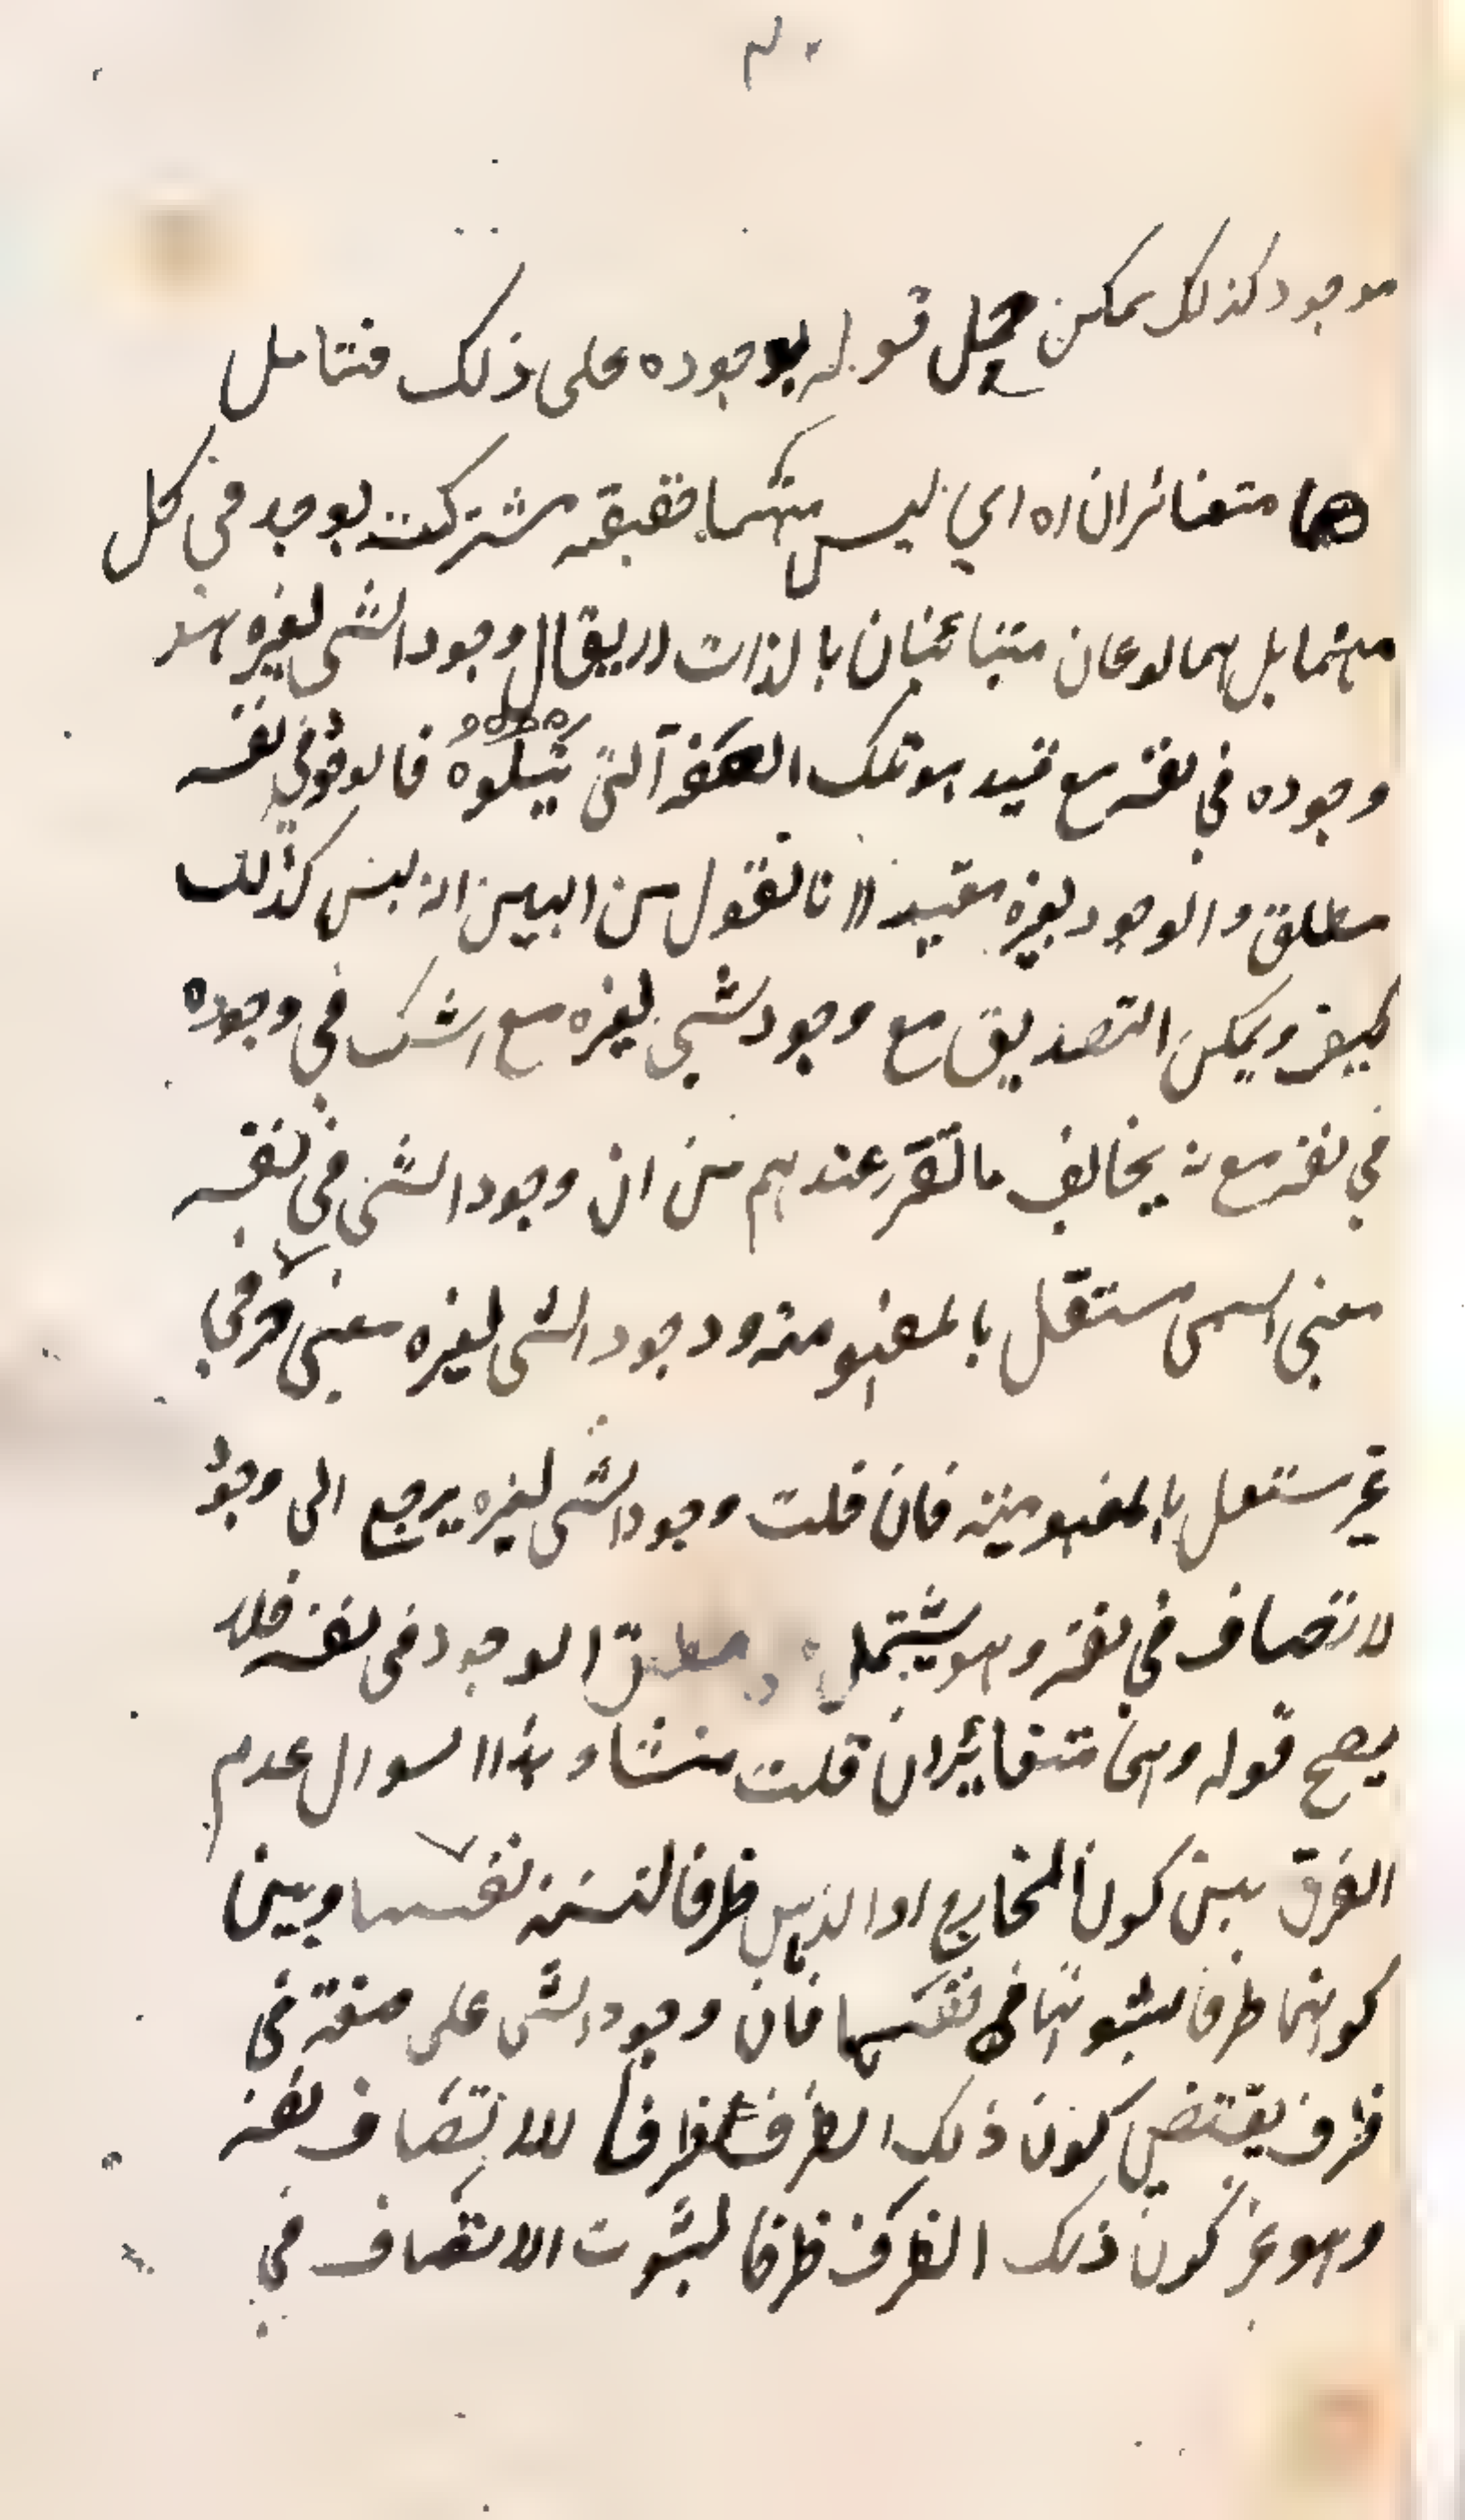 موجود كذلك يمكن حمل قوله بوجوده على ذلك فتامل
هما متغائران اه اي ليس بينهما حقيقة مشتركة يوجد في كل
منهما بل هما نوعان متبائنان بالذات لا يقال وجود الشي لغيره هو
وجوده في نفسه مع قيد هو تلك فالوجود في نفسه
مطلق والوجود لغيره مقيد لانا نقول من البين انه ليس كذلك
كيف ويمكن التصديق مع وجود شي لغيره مع الشك في وجوده
في نفسه مع انه يخالف ما تقرر عندهم من ان وجود الشي في نفسه
معنى اسمى مستقل بالمفهومية ووجود الشي لغيره معنى حرفي
غير مستقل بالمفهومية فان قلت وجود الشي لغيره يرجع الى وجود
الاتصاف في نفسه وهو يشتمل مطلق الوجود في نفسه فلا
يصح قوله وهما متغائران قلت منشاء هذا السوال عدم
الفرق بين كون الخارج او الذهن ظرفا لنسبة نفسها وبين
كونهما ظرفا لثبوتها في نفسها فان وجود الشي على صفة في
ظرف يقتضي كون ذلك الظرف ظرفا للاتصاف نفسه
وهو غير كون ذلك الظرف ظرفا لثبوت الاتصاف في